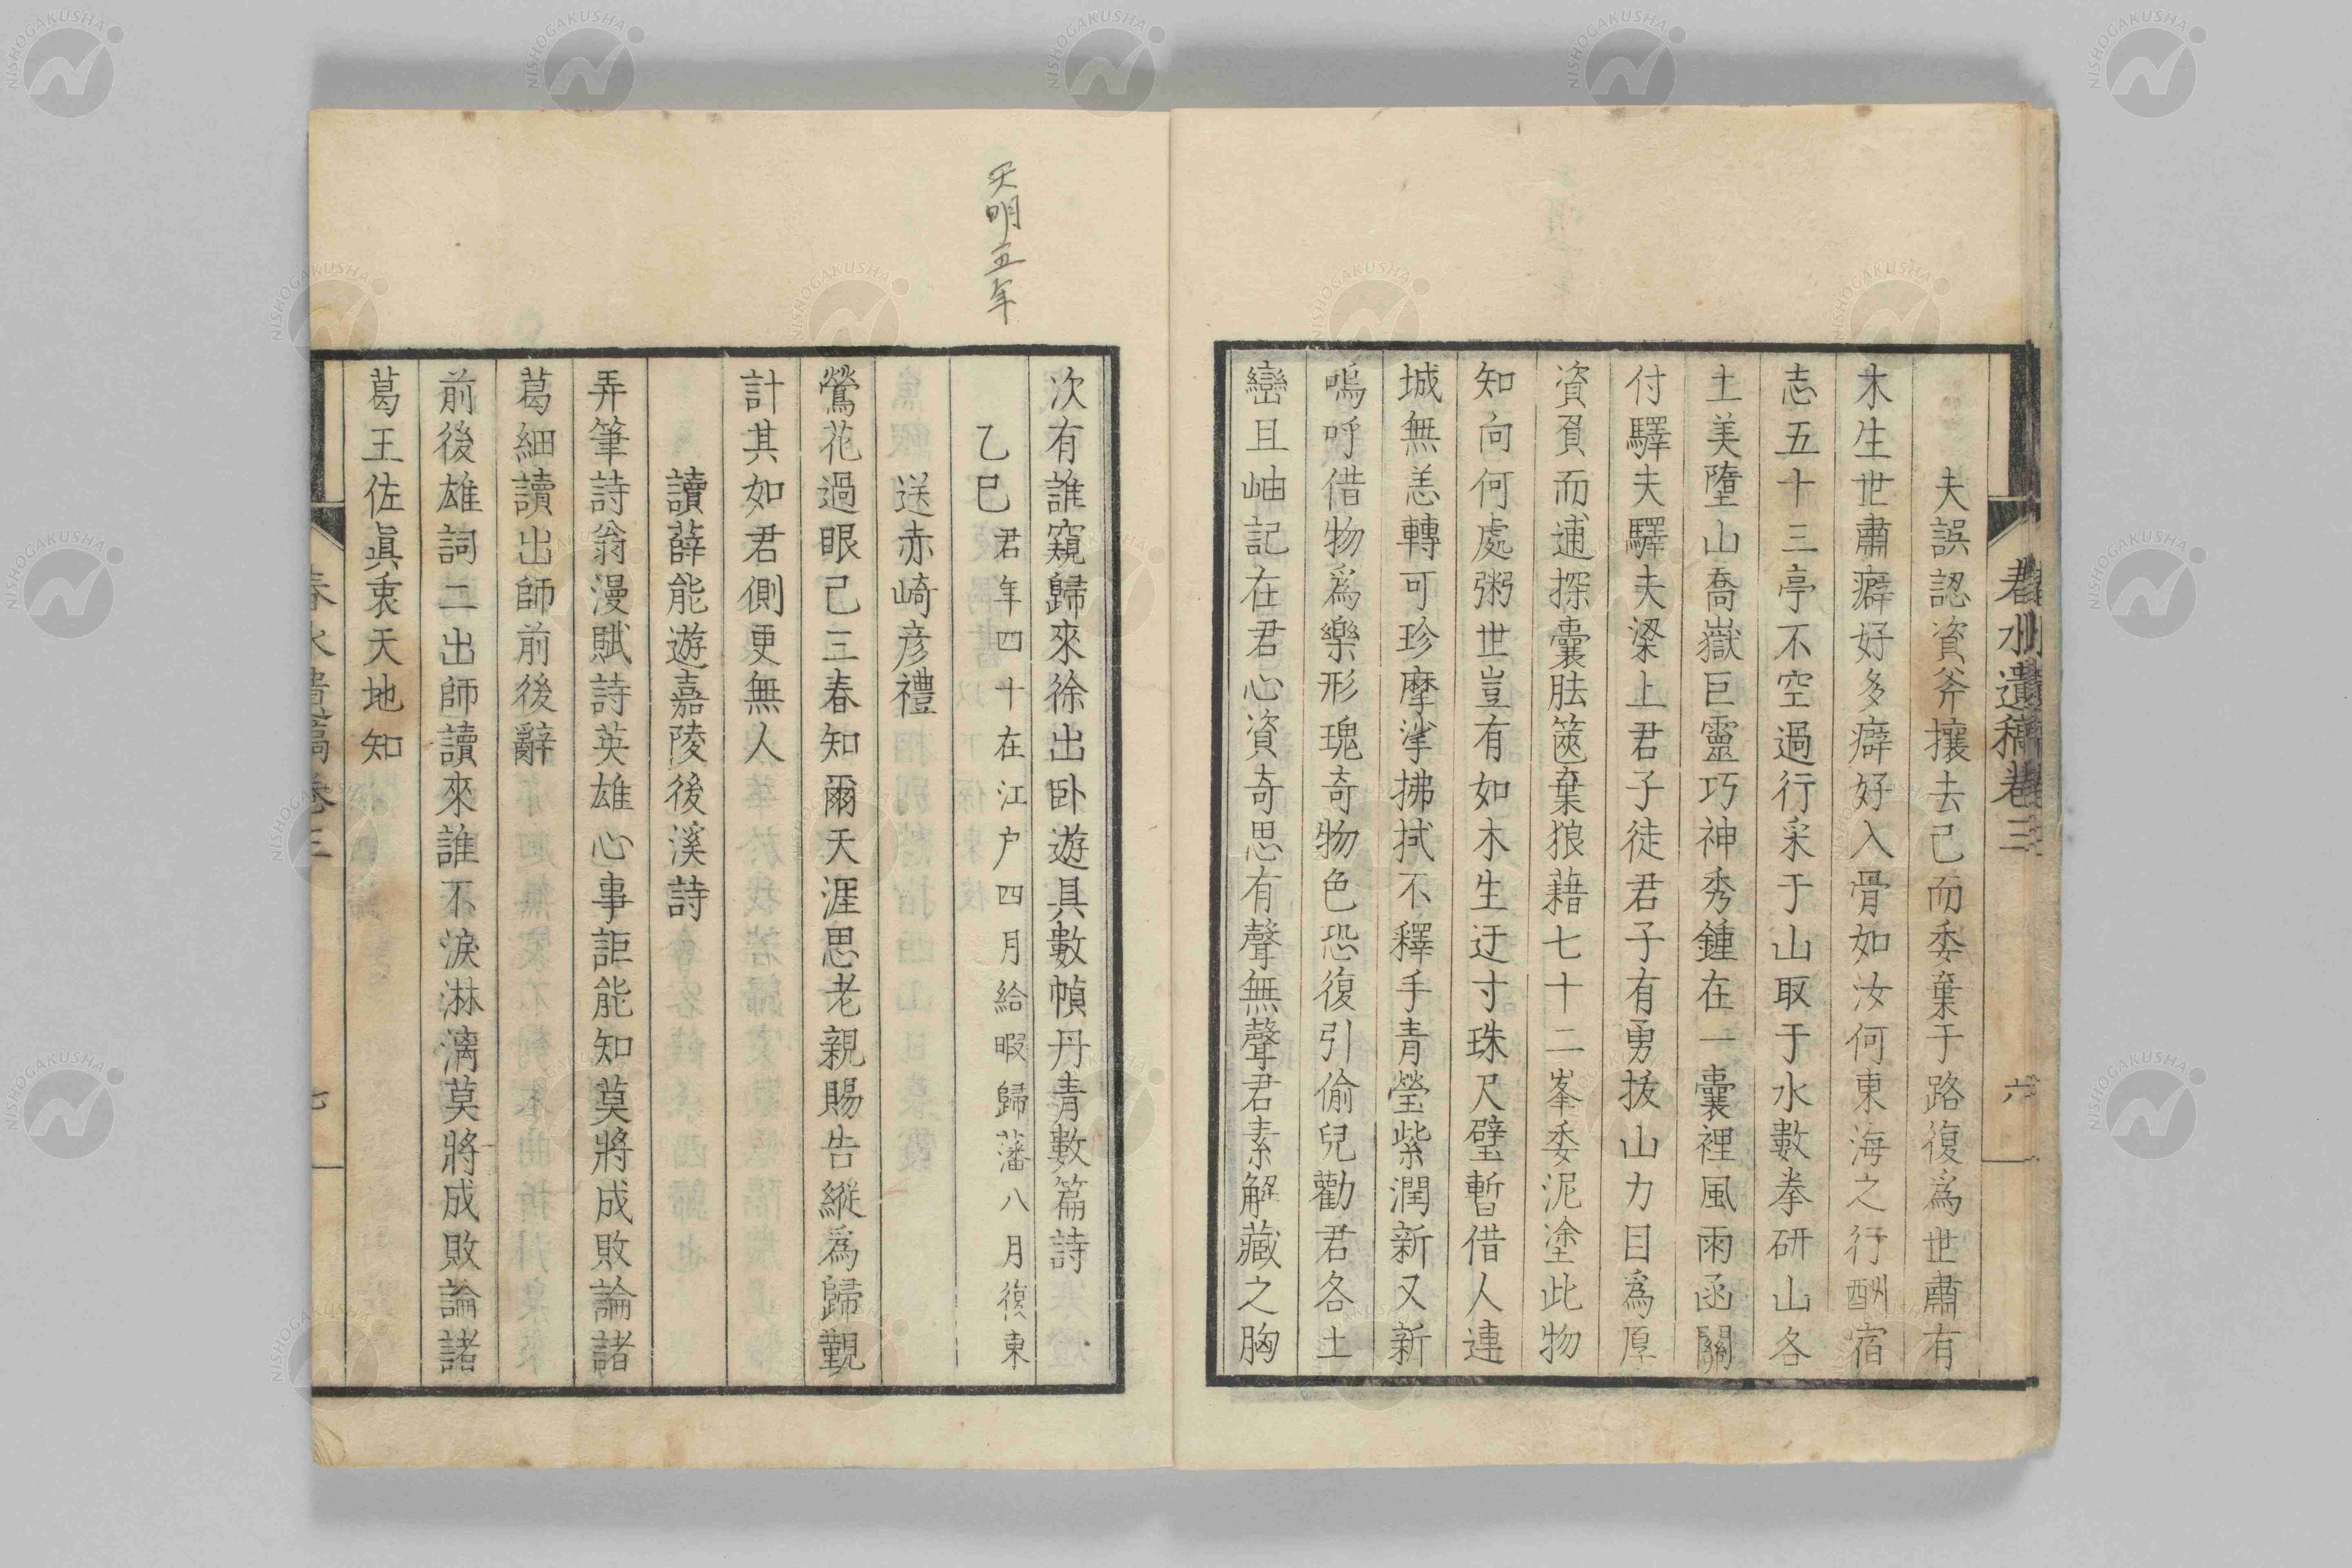 春水遺稿卷三
六
夫誤認資斧攘去已而委棄于路復爲世肅有
木生世肅癖好多癖好入骨如汝何東海之行酬宿
志五十三亭不空過行采于山取于水數拳研山各
土美墮山喬嶽巨靈巧神秀鍾在一囊裡風雨函關
付驛夫驛夫梁上君子徒君子有勇拔山力目爲厚
資負而逋探囊胠篋棄狼藉七十二峯委泥塗此物
知向何處粥世豈有如木生迂寸珠尺璧暫借人連
城無恙轉可珍摩挲拂拭不釋手青瑩紫潤新又新
嗚呼借物爲樂形瑰奇物色恐復引偷兒勸君各土
巒且岫記在君心資奇思有聲無聲君素解藏之胸
天明五年
次有誰窺歸來徐出臥遊具數幀丹青數篇詩
乙巳 君年四十在江戶四月給暇歸藩八月復東
送赤崎彦禮
鶯花過眼已三春知爾天涯思老親賜告縱爲歸觀
計其如君側更無人
讀薛能遊嘉陵後溪詩
弄筆詩翁漫賦詩英雄心事詎能知莫將成敗論諸
葛細讀出師前後辭
前後雄詞二出師讀來誰不淚淋漓莫將成敗論諸
葛王佐眞衷天地知
春水遺稿卷三
七
NISHOGAKUSHA